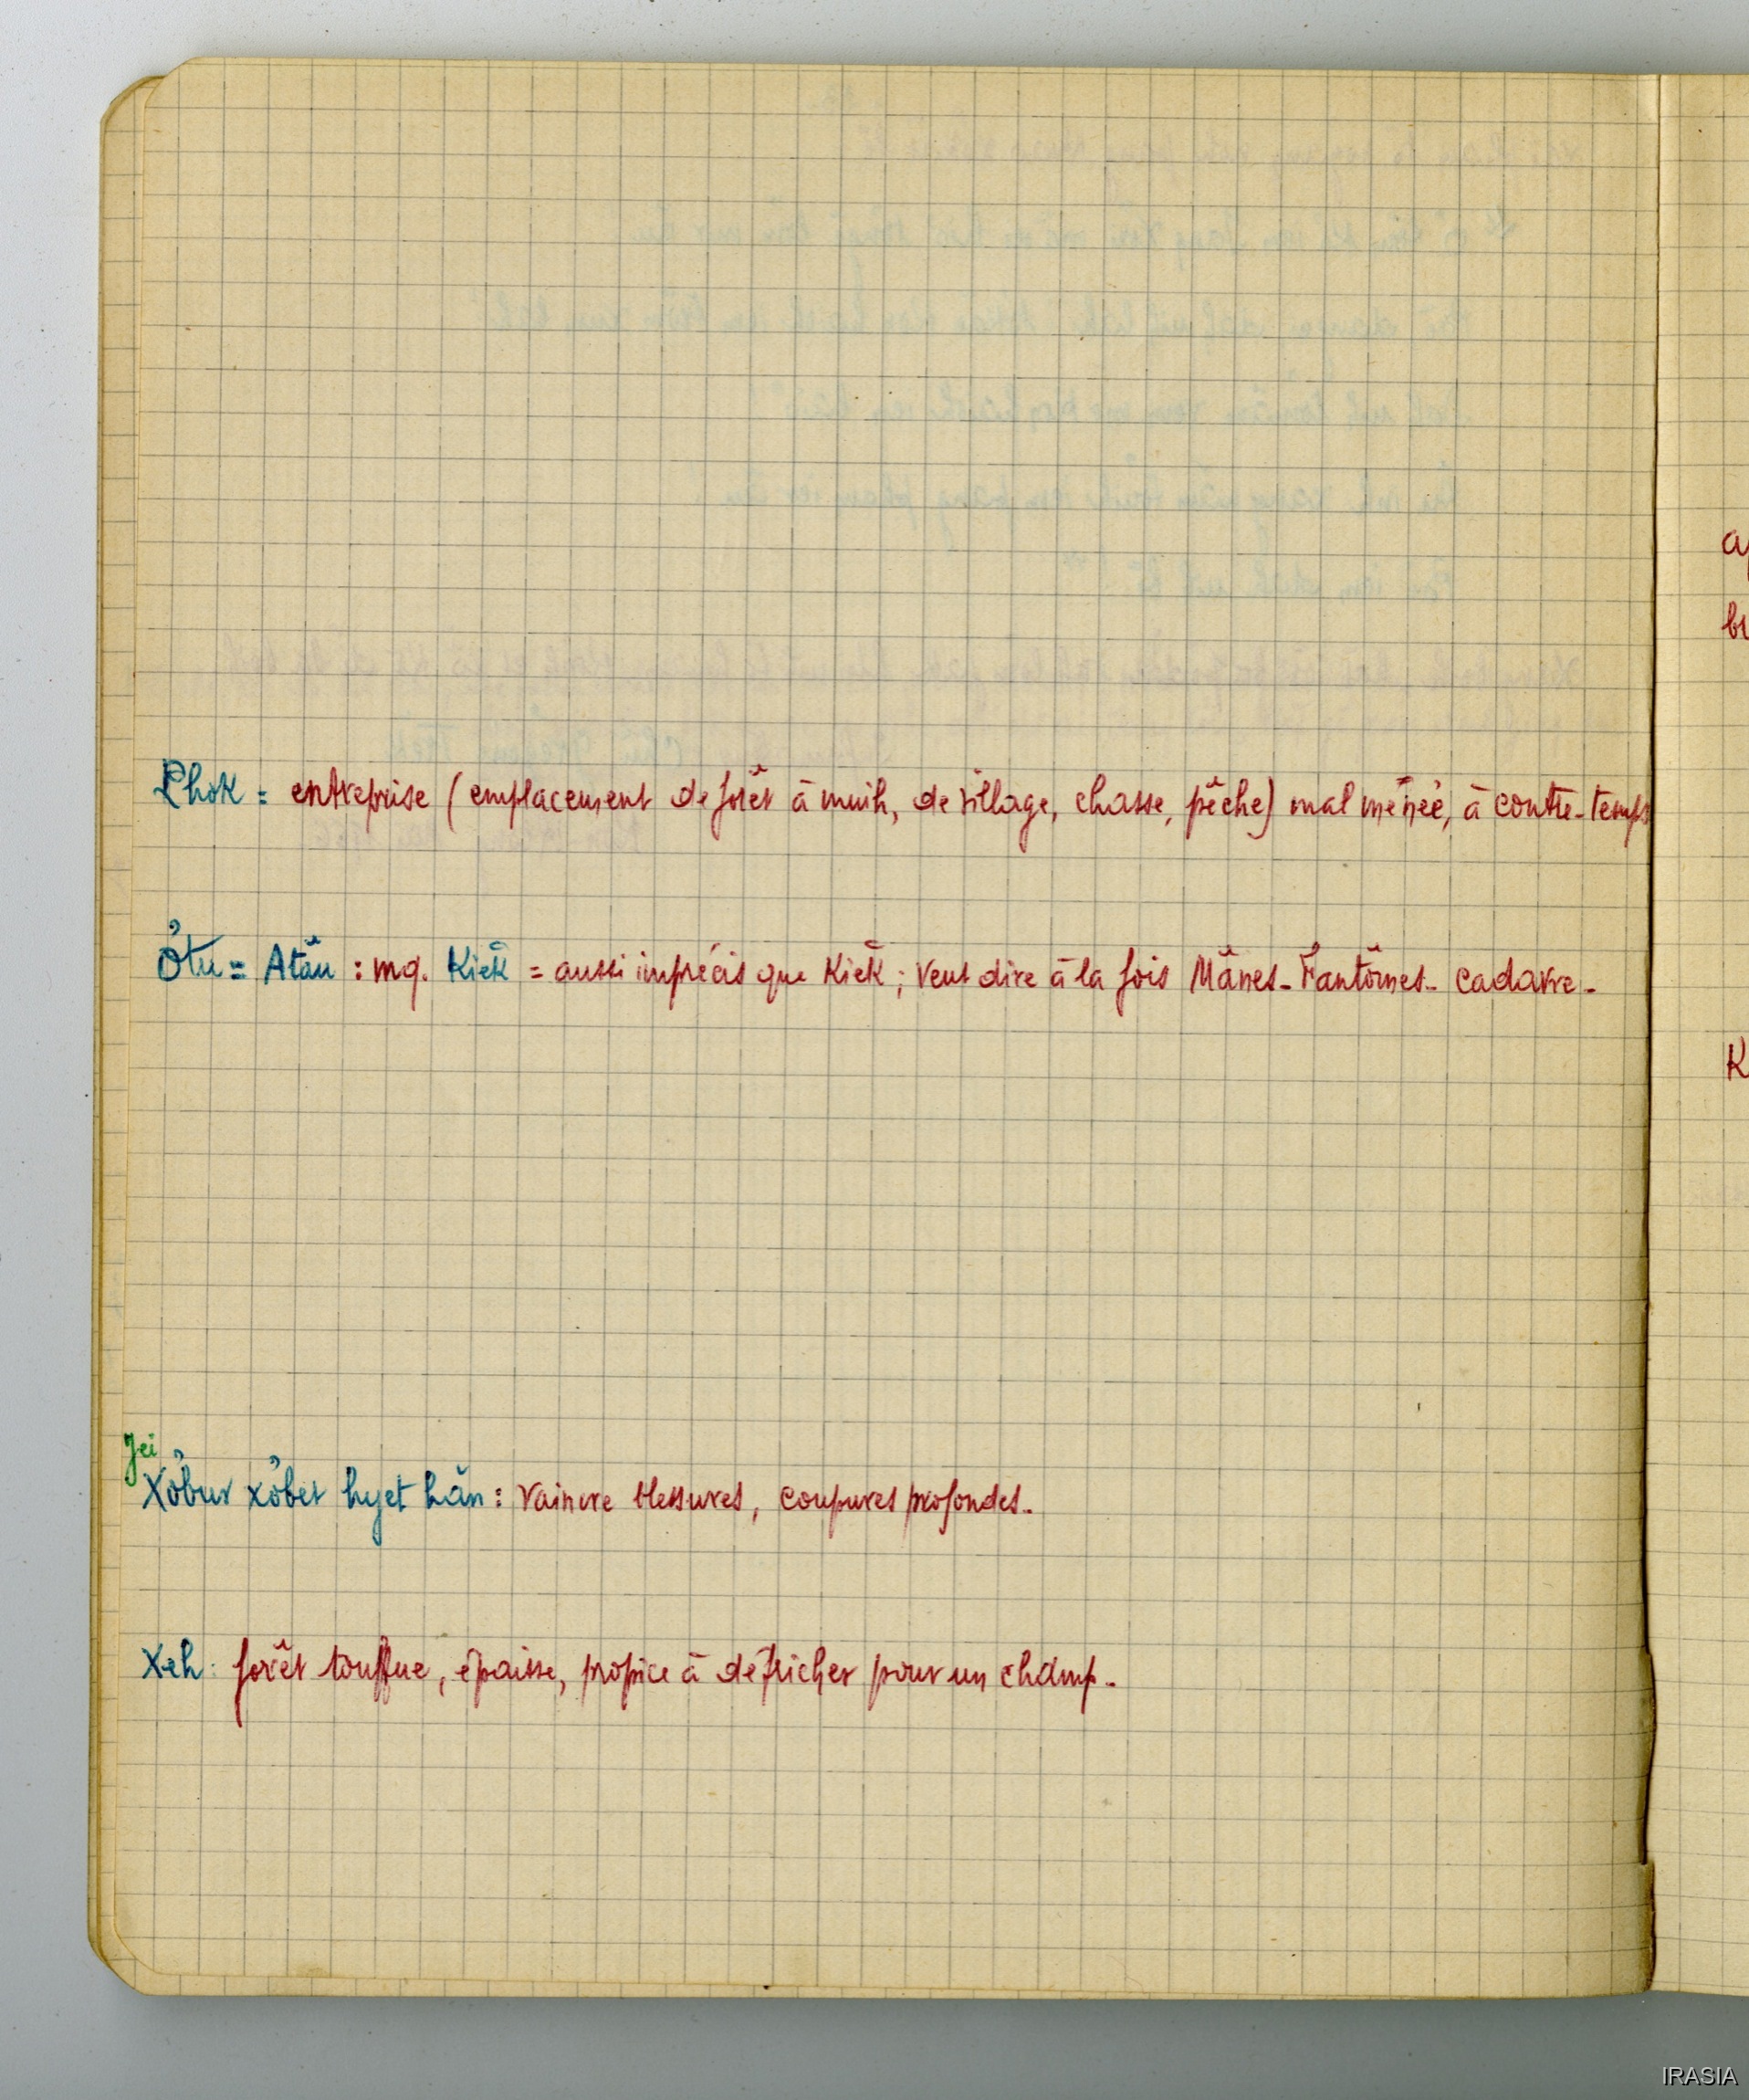 Chok = entreprise (emplacement de forêt à muih, de village, chasse, pêche) mal menée, à contre-temps
Ơtu = Atâu : mg. Kiêk = aussi imprécis que Kiêk ; veut dire à la fois Mânes - Fantômes - cadavre -
Jei
Xơbur xơbet hyet hăn : vaincre blessures, coupures profondes -
Xeh : forêt touffue, épaisse, propice à défricher pour un champ -
IRASIA